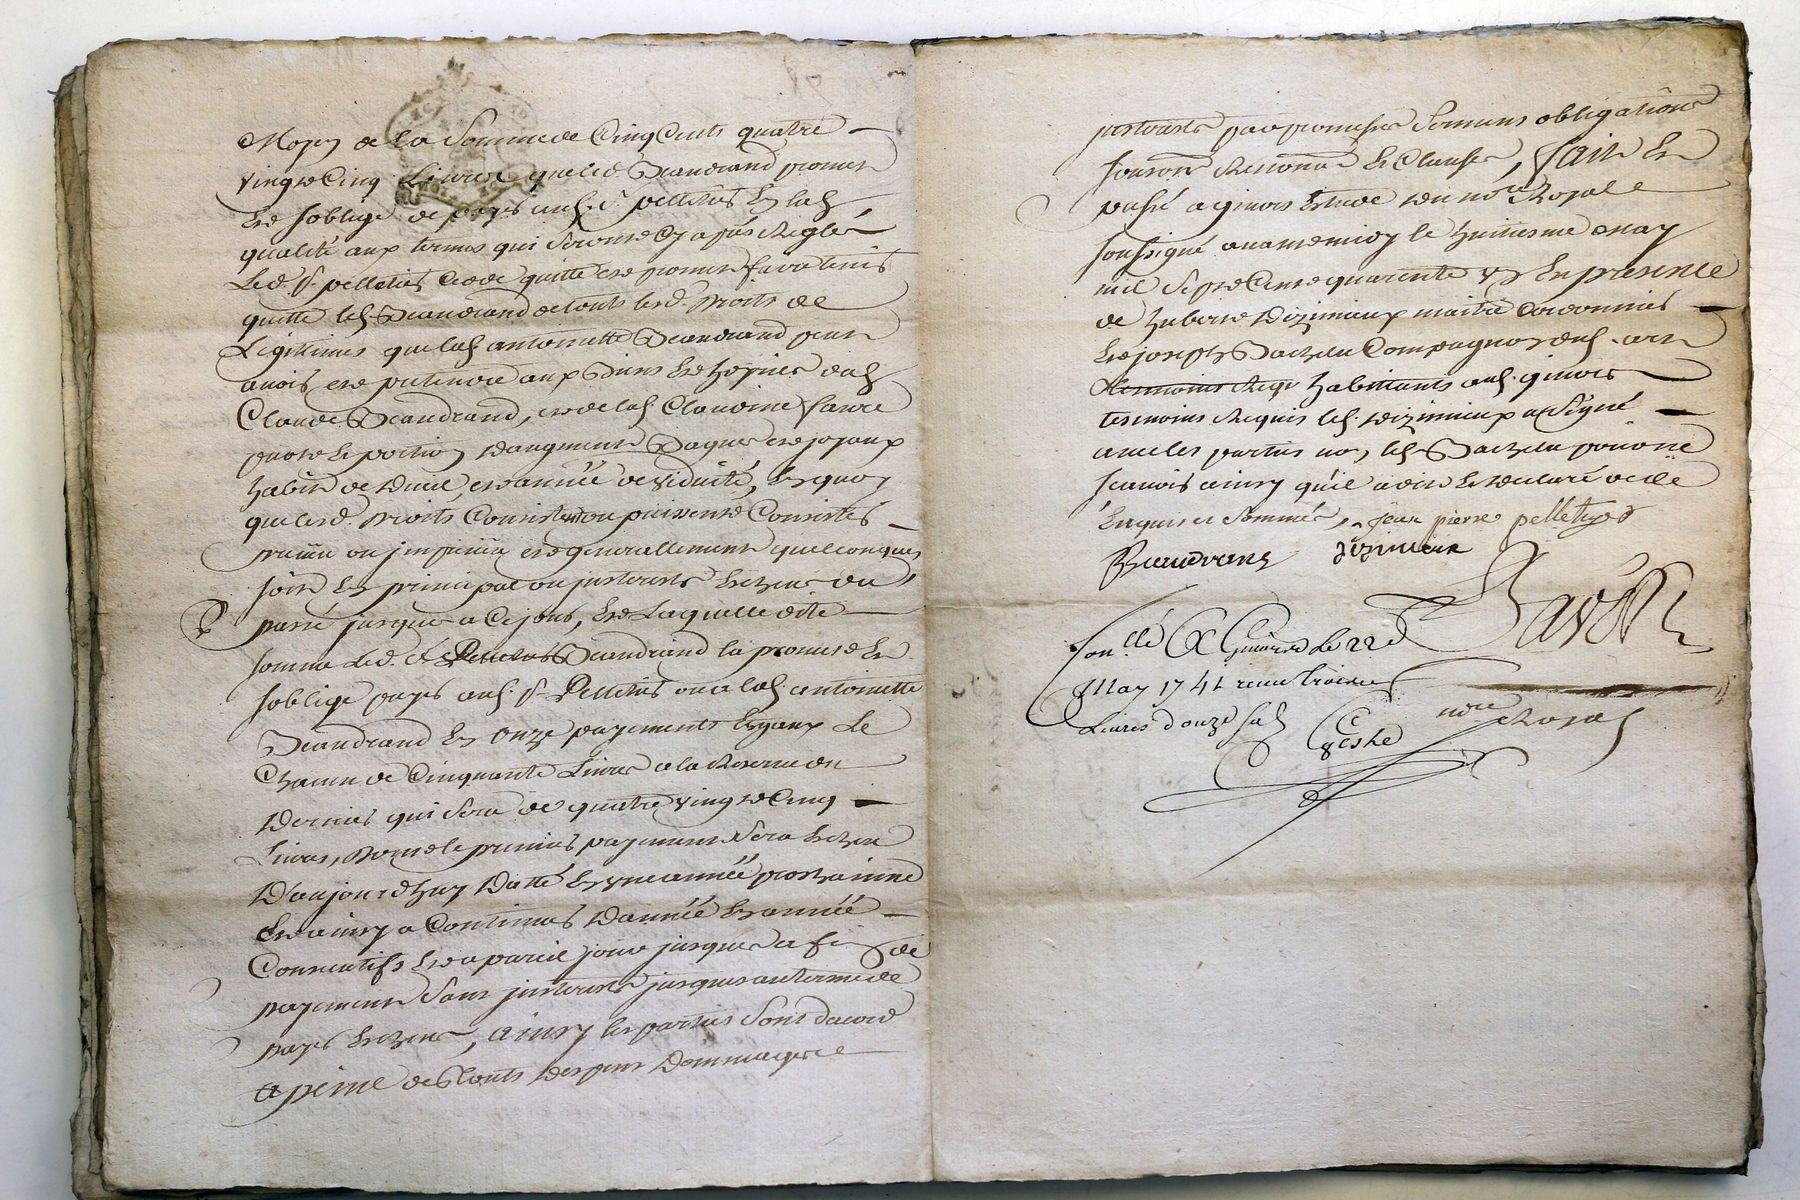 Moyen de la somme de Cinq Cents quatre
vingt Cinq Livres que led Beaudrand promet
et soblige de payer aud. s.r pelletier en lad
qualité aux termes qui seront cy apres Reglés
Led. s.r pelletier cede quitte et promet faire tenir
quitte led Beaudrand de touts lesd. Droits de
Legitimes que lad antoinette Beaudrand peut
avoir et pretendre aux Biens et hoyries dud
Claude Beaudrand, et de lad Claudine favre
part et portion daugment Bagues et joyaux
habit de Dueil, et année de viduité, En quoy
que lesd. Droits Consistent ou puissent Consister
et generallement quelconques
soit En principal ou justerets Echeus du
passé jusques a Ce jour, et Laquelle dite
somme Led. Beaudrand la promet et
soblige payer aud. s.r Pelletier ou a lad antoinette
Beaudrand En onze payements Egaux de
Chacun de Cinquante Livres a la Reserve du
Dernier qui sera de quatre vingt Cinq
Livres, Dont le premier payement sera Echeu
Daujourdhuy Datté En une année prochaine
et ainsy a Continuer Dannée En année
Consecutifs et a pareil jour jusques a fin de
payement sans justerets jusques au terme de
payes Echeus, ainsy les parties sont dacord
a peine de touts Despens Dommages
justerets par promesses Serments obligations
Renonces et Clauses, fait et
passé a givors Estude du no.re Royal
soussigné avant midy le huitiesme may
mil sept Cent quarente un En presence
de huber Dizimieux maitre Cordonnier
et joseph Bachelu Compagnon aud. art
temoins Requis habittants aud. givors
tesmoins Requis led. Dizimieux a signé
avec les parties non led Bachelu pour ne
scavoir ainsy qu'il a dit et declaré de ce
Enquis et sommés, jean pierre pelletier
Beaudrand dizimieux
Con.llé A Givors le 22e
May 1741 receu trois
Livres douze sols
no.re Royal